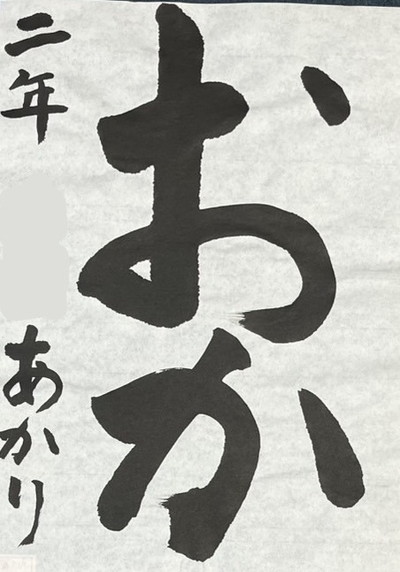 おか
二年
あかり